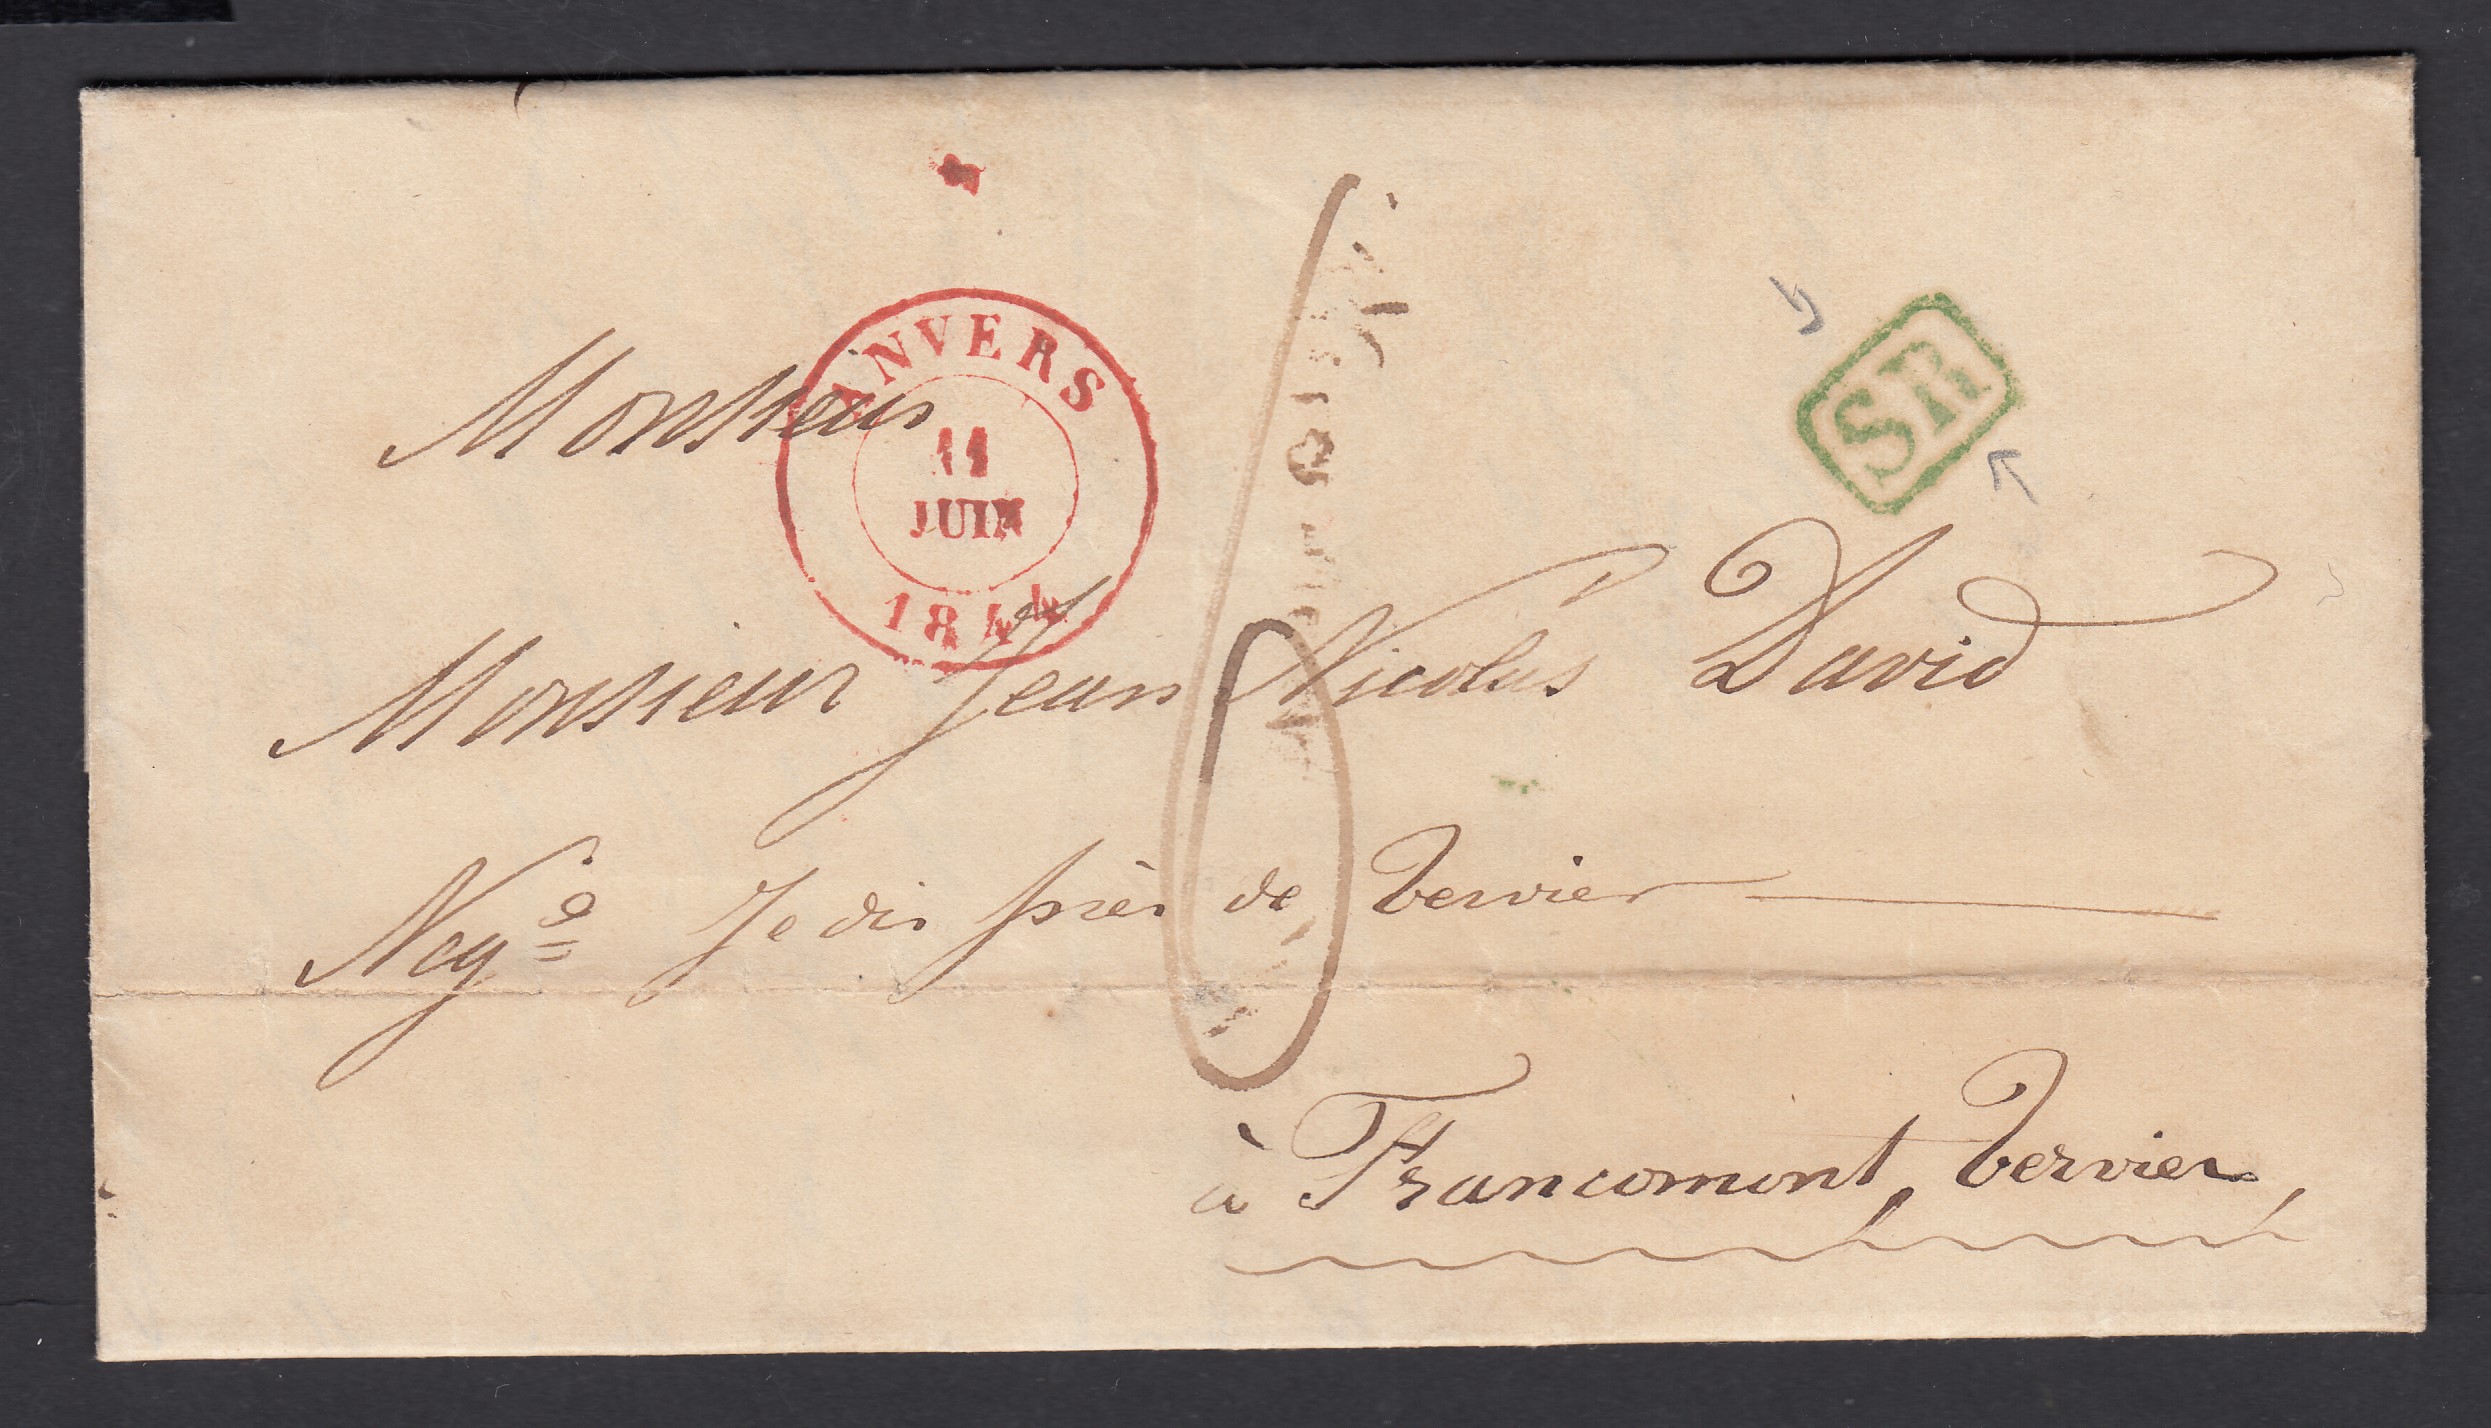 ANVERS
11
JUIN
1844
SR
Monsieur
Monsieur Jean Nicolas David
Neg.t près de Vervier
à Francomont, Vervier,